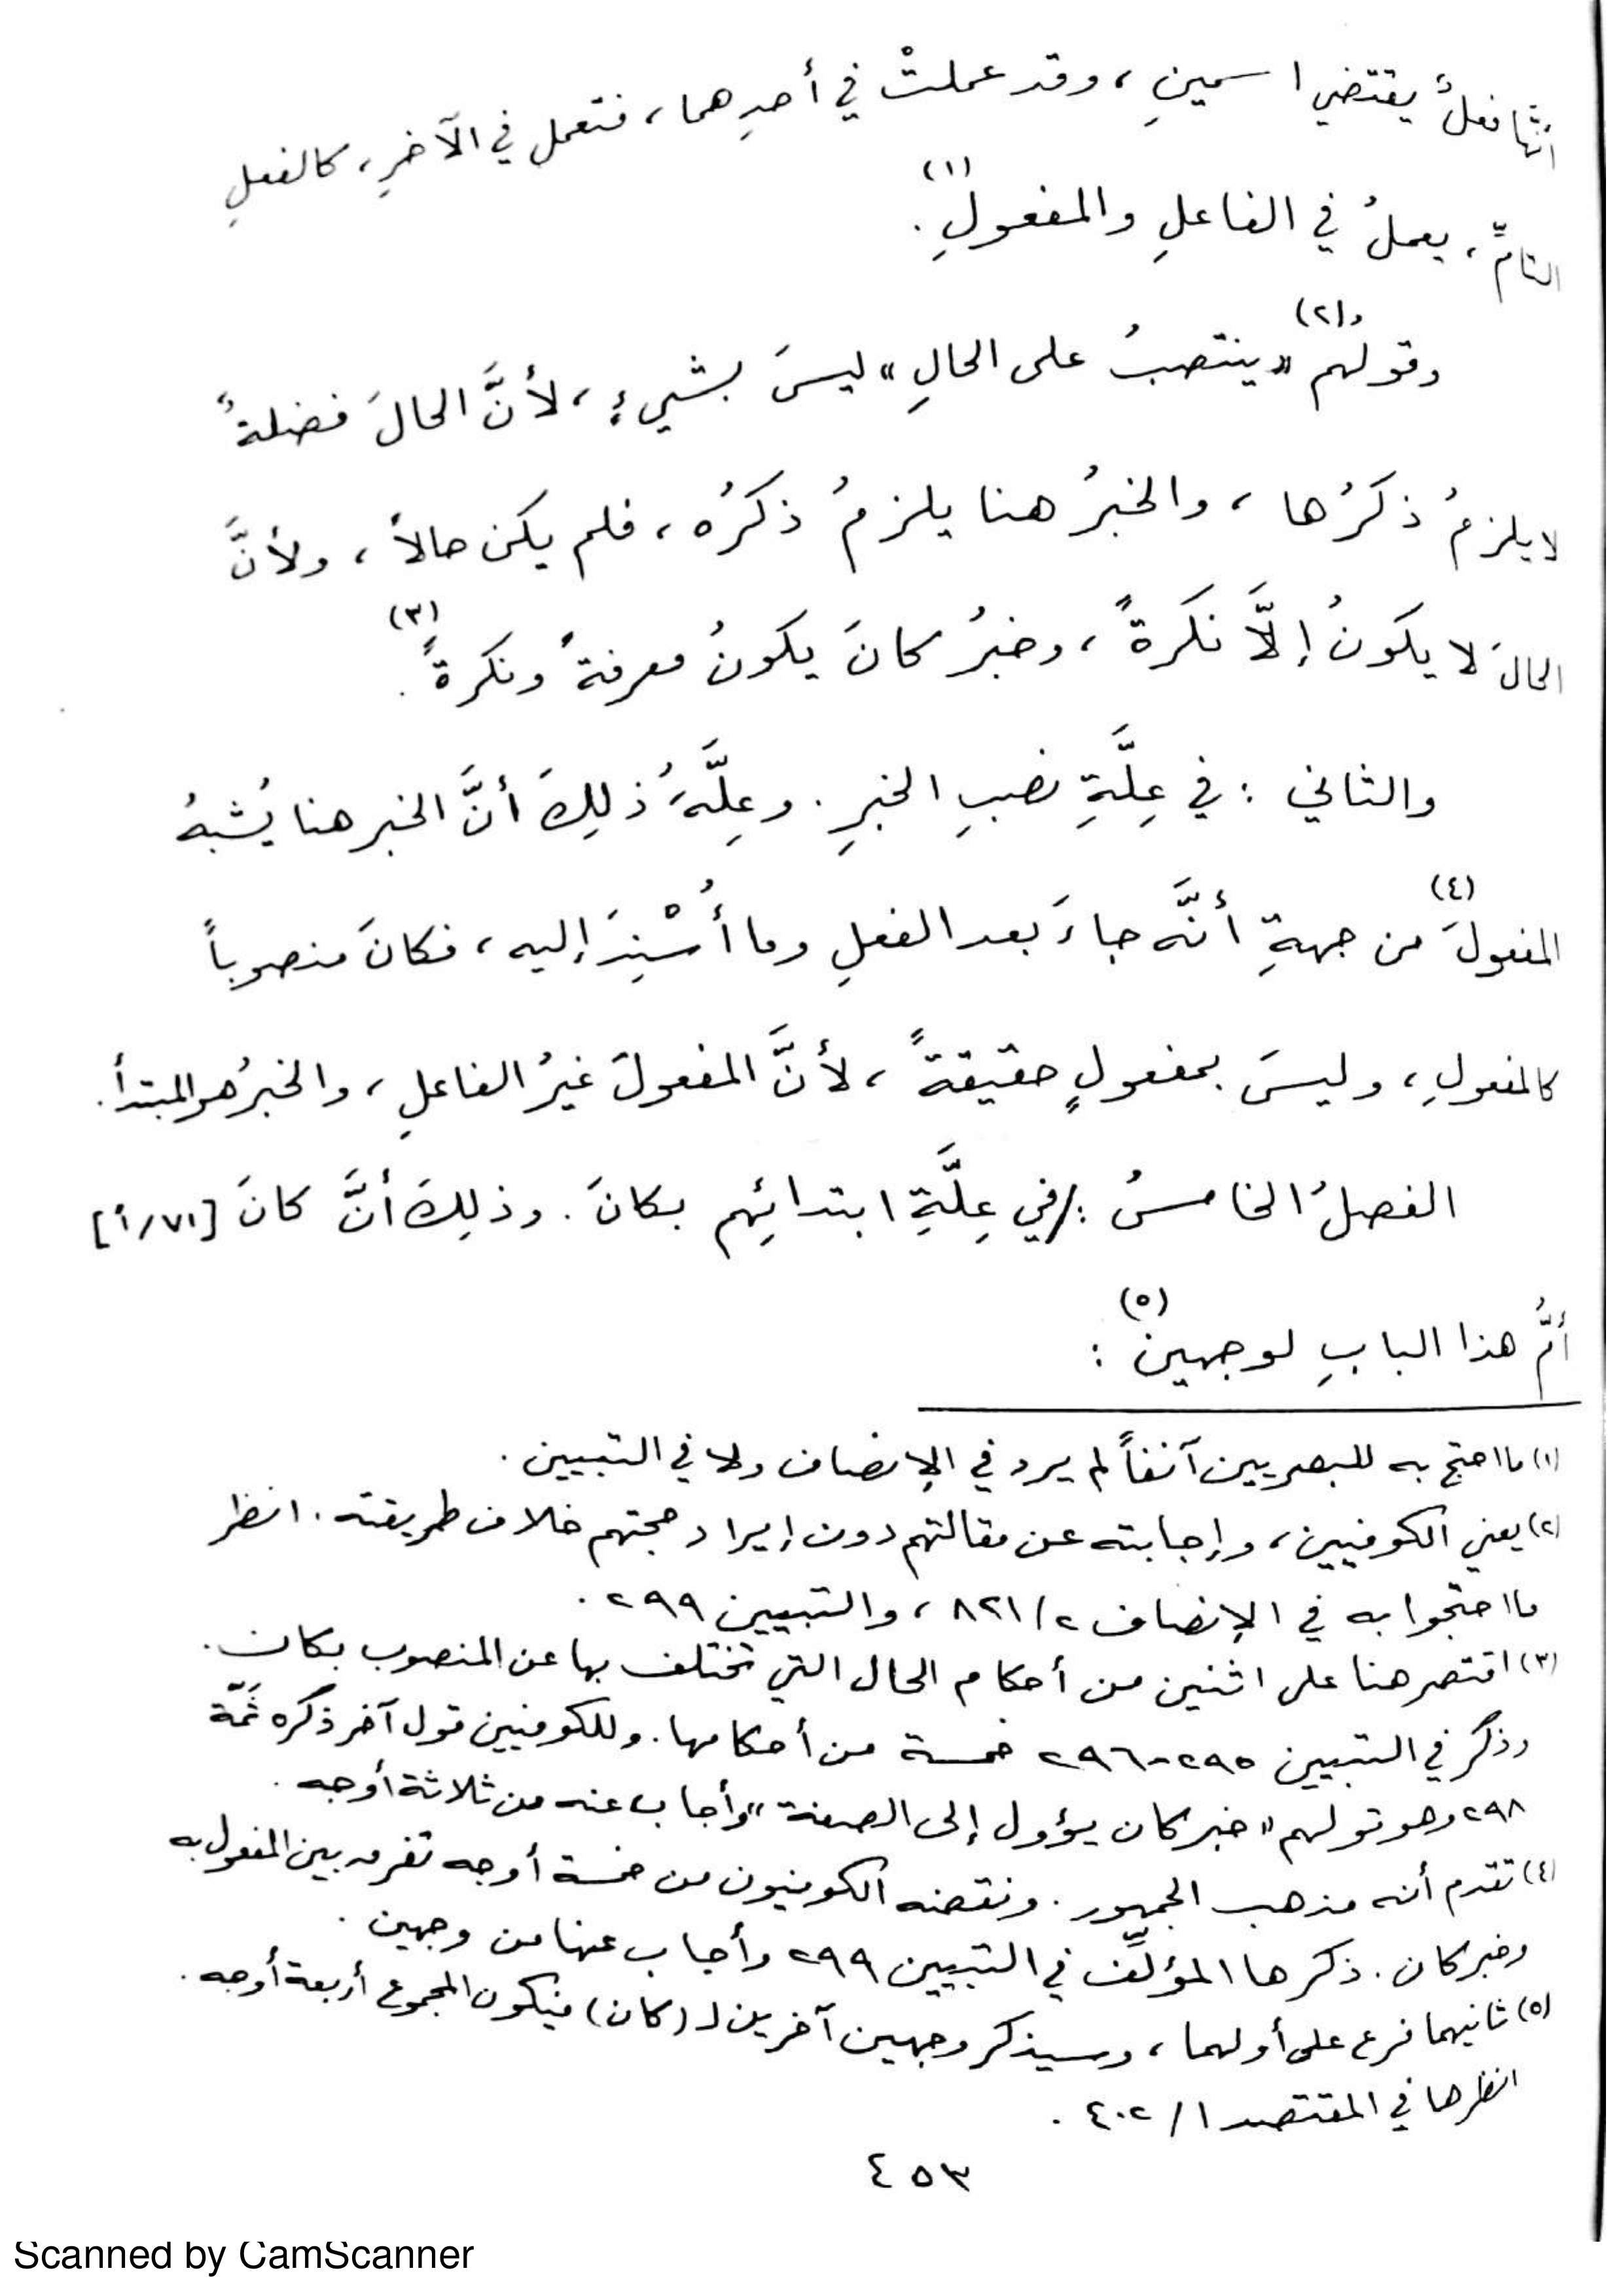 أنّها فعلٌ يقتضي اسمينِ، وقد عملتْ في أحدِهما، فتعمل في الآخرِ، كالفعلِ
التامِّ، يعملُ في الفاعلِ والمفعولِ(١).
وقولُهم(٢) «ينتصبُ على الحالِ» ليسَ بشيءٍ، لأنَّ الحالَ فضلةٌ
لا يلزمُ ذكرُها، والخبرُ هنا يلزمُ ذكرُه، فلم يكن حالاً، ولأنَّ
الحالَ لا يكونُ إلاَّ نكرةً، وخبرُ كانَ يكونُ معرفةً ونكرةً(٣).
والثاني: في عِلَّةِ نصبِ الخبرِ. وعِلَّةُ ذلِكَ أنَّ الخبر هنا يُشبهُ
المفعولَ(٤) من جهةِ أنَّه جاءَ بعد الفعلِ وما أُسْنِدَ إليه، فكانَ منصوباً
كالمفعولِ، وليسَ بمفعولٍ حقيقةً، لأنَّ المفعولَ غيرُ الفاعلِ، والخبرُ هو المبتدأ.
الفصلُ الخامسُ: /في عِلَّةِ ابتدائِهم بكانَ. وذلِكَ أنَّ كانَ [٧١/أ]
أمُّ هذا البابِ لوجهين(٥):
(١) ما احتج به للبصريين آنفاً لم يرد في الإنصاف ولا في التبيين.
(٢) يعني الكوفيين، وإجابته عن مقالتهم دون إيراد حجتهم خلاف طريقته. انظر
ما احتجوا به في الإنصاف ٢/ ٨٢١، والتبيين ٢٩٩.
(٣) اقتصر هنا على اثنين من أحكام الحال التي تختلف بها عن المنصوب بكان.
وذكر في التبيين ٢٩٥-٢٩٦ خمسة من أحكامها. وللكوفيين قول آخر ذكره ثَمّة
٢٩٨ وهو قولهم «خبر كان يؤول إلى الصفة» وأجاب عنه من ثلاثة أوجه.
(٤) تقدم أنه مذهب الجمهور. ونقضه الكوفيون من خمسة أوجه تفرق بين المفعول به
وخبر كان. ذكرها المؤلِّف في التبيين ٢٩٩ وأجاب عنها من وجهين.
(٥) ثانيهما فرع على أولهما، وسيذكر وجهين آخرين لـ (كان) فيكون المجموع أربعة أوجه.
انظرها في المقتصد ١/ ٤٠٢.
٤٥٣
Scanned by CamScanner